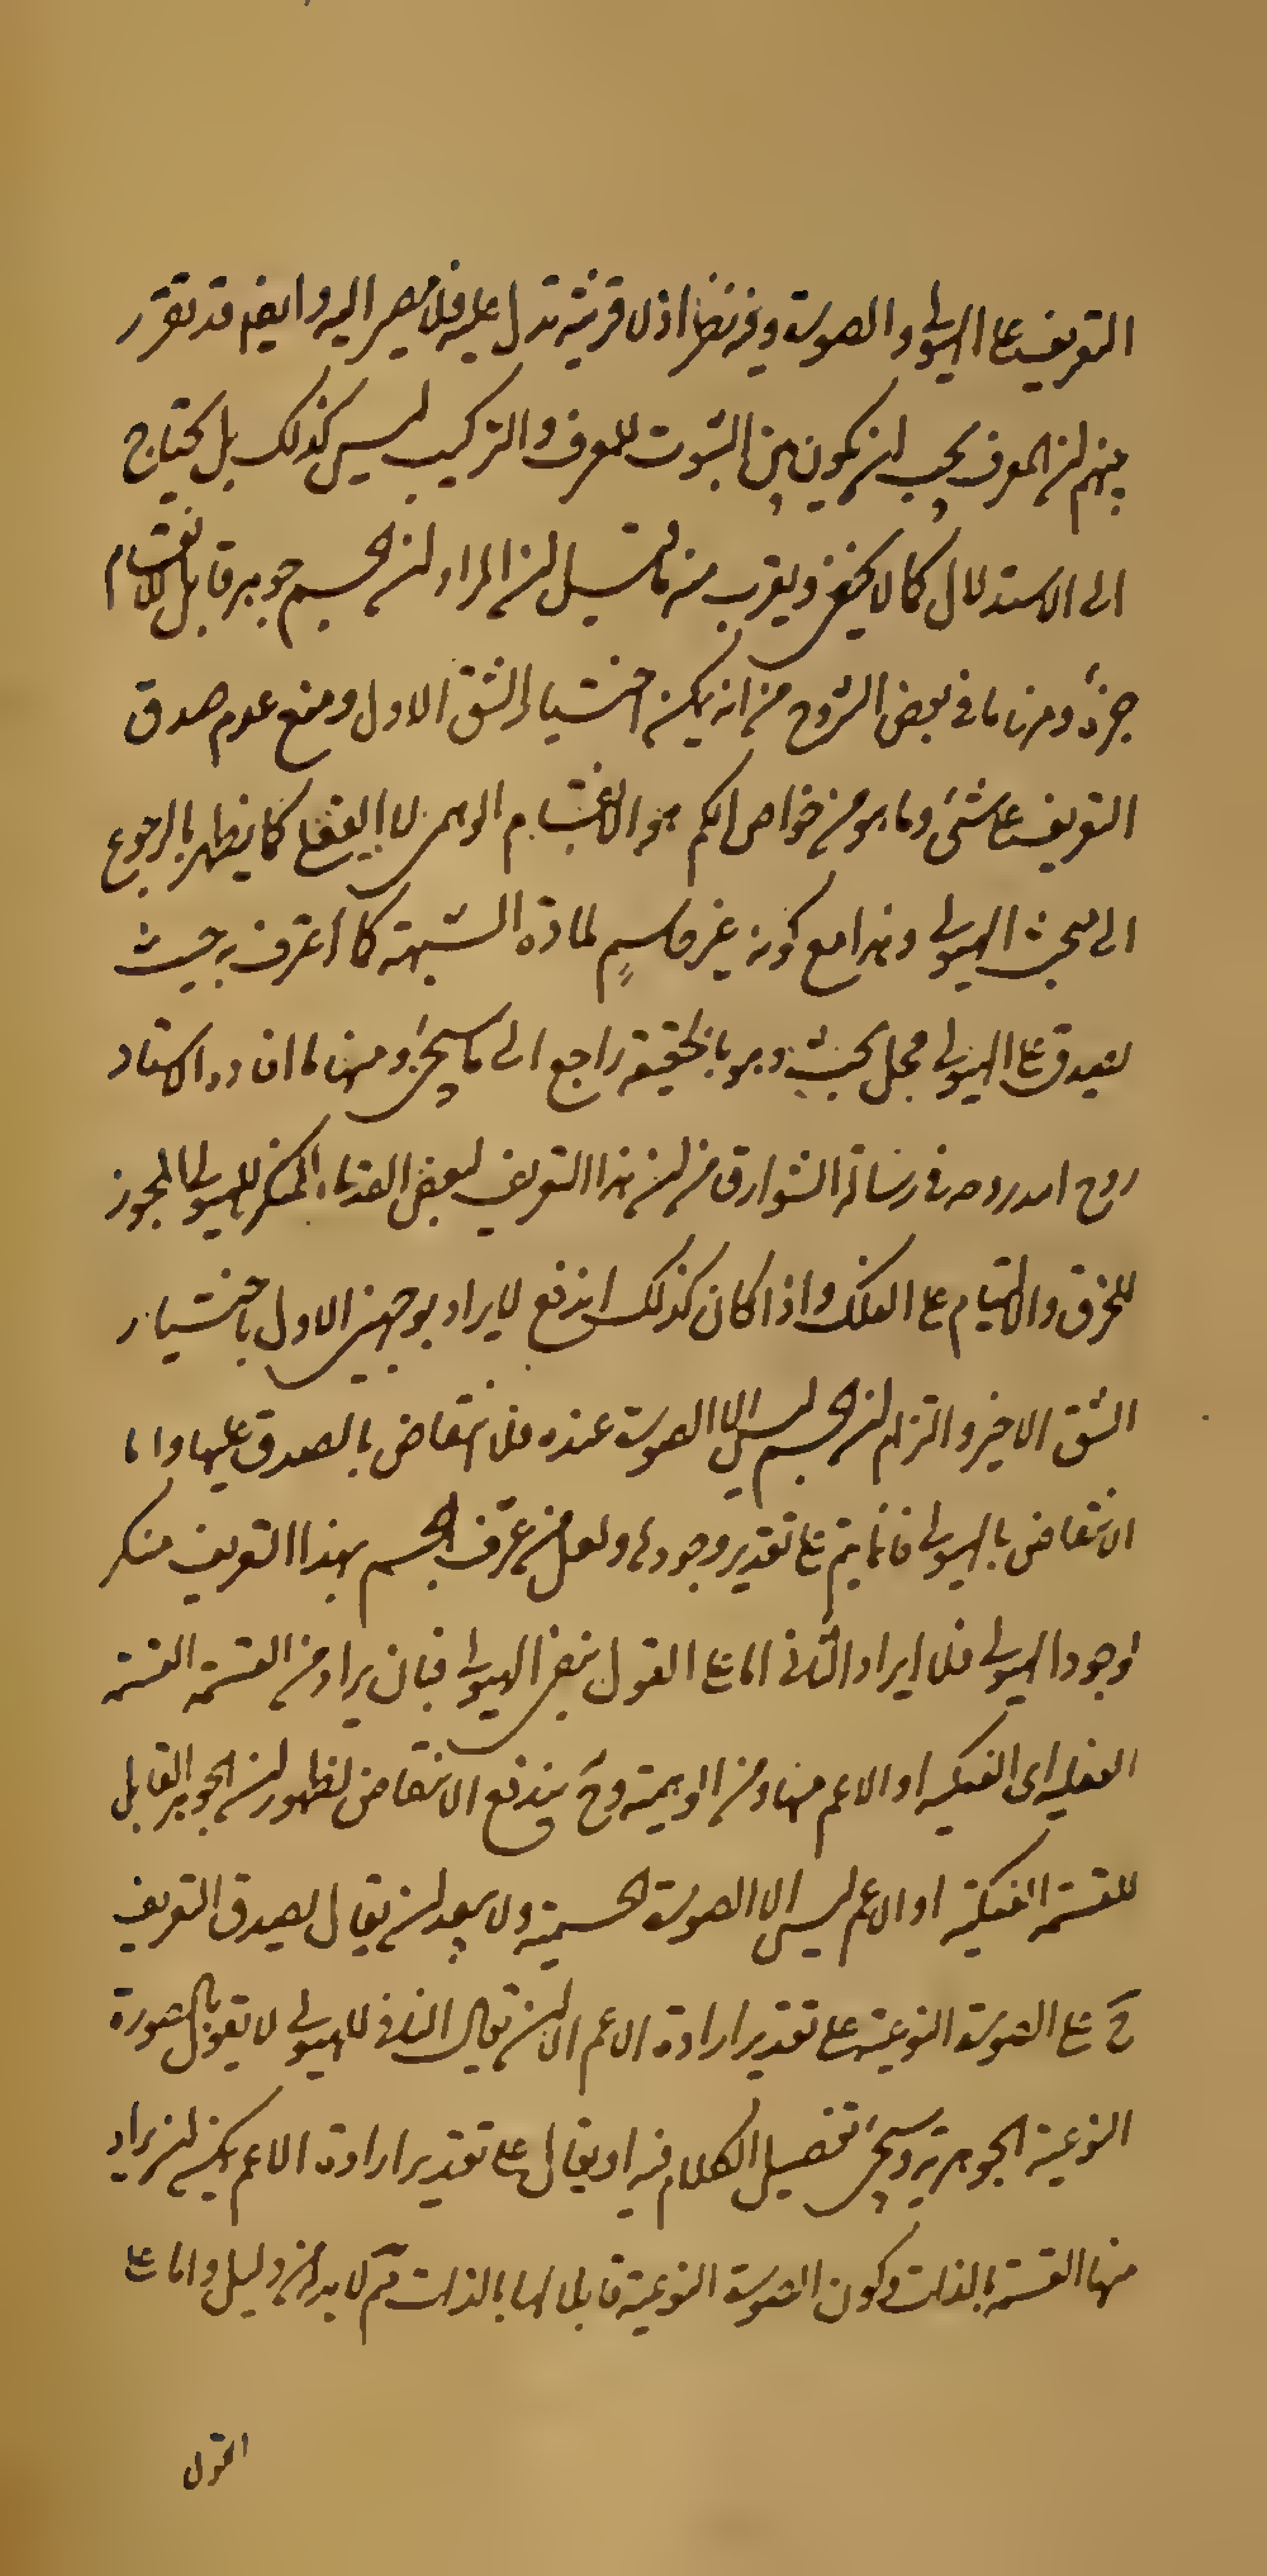 التعريف على الهيولى والصورة وفيه نظر اذ لا قرينة تدل عليه فلا مصير اليه وايضا قد تقرر
بينهم ان المعرف يجب ان يكون بين الثبوت للمعرف والتركيب ليس كذلك بل يحتاج
الى الاستدلال كما لا يخفى ويقرب منه ما قيل ان المراد ان الجسم جوهر قابل للانقسام
جزءً ومنها ما فى بعض الشروح من انه يمكن اختيار الشق الاول ومنع عدم صدق
التعريف على شئ وما هو من خواص الكم هو الانقسام الوهمى لا الفعلى كما يظهر بالرجوع
الى مبحث الهيولى وهذا مع كونه غير حاسم لمادة الشبهة كما اعترف به حيث
يصدق على الهيولى محل بحث وهو بالحقيقة راجع الى ما سيجئ ومنها ما افاده الاستاد
روح الله روحه فى رسالة الشوارق من ان هذا التعريف لبعض القدماء المنكر للهيولى المجوز
للخرق والالتيام على الفلك واذا كان كذلك اندفع الايراد بوجهين الاول باختيار
الشق الاخير والتزام ان الجسم ليس الا الصورة عنده فلا انتقاض بالصدق عليها واما
الانتقاض بالهيولى فانما يتم على تقدير وجودها ولعل من عرّف الجسم بهذا التعريف منكر
لوجود الهيولى فلا ايراد الثانى اما على القول بنفى الهيولى فبان يراد من القسمة القسمة
الفعلية اى الفكية او الاعم منها ومن الوهمية وح يندفع الانتقاض لظهور ان الجوهر القابل
للقسمة الفكية او الاعم ليس الا الصورة الجسمية ولا يبعد ان يقال يصدق التعريف
ح على الصورة النوعية على تقدير ارادة الاعم الا ان يقال النافى للهيولى لا يقول بالصورة
النوعية الجوهرية وسيجئ تفصيل الكلام فيه او يقال على تقدير ارادة الاعم يمكن ان يراد
منها القسمة بالذات وكون الصورة النوعية قابلا لها بالذات مم لا بد له من دليل واما على
القول